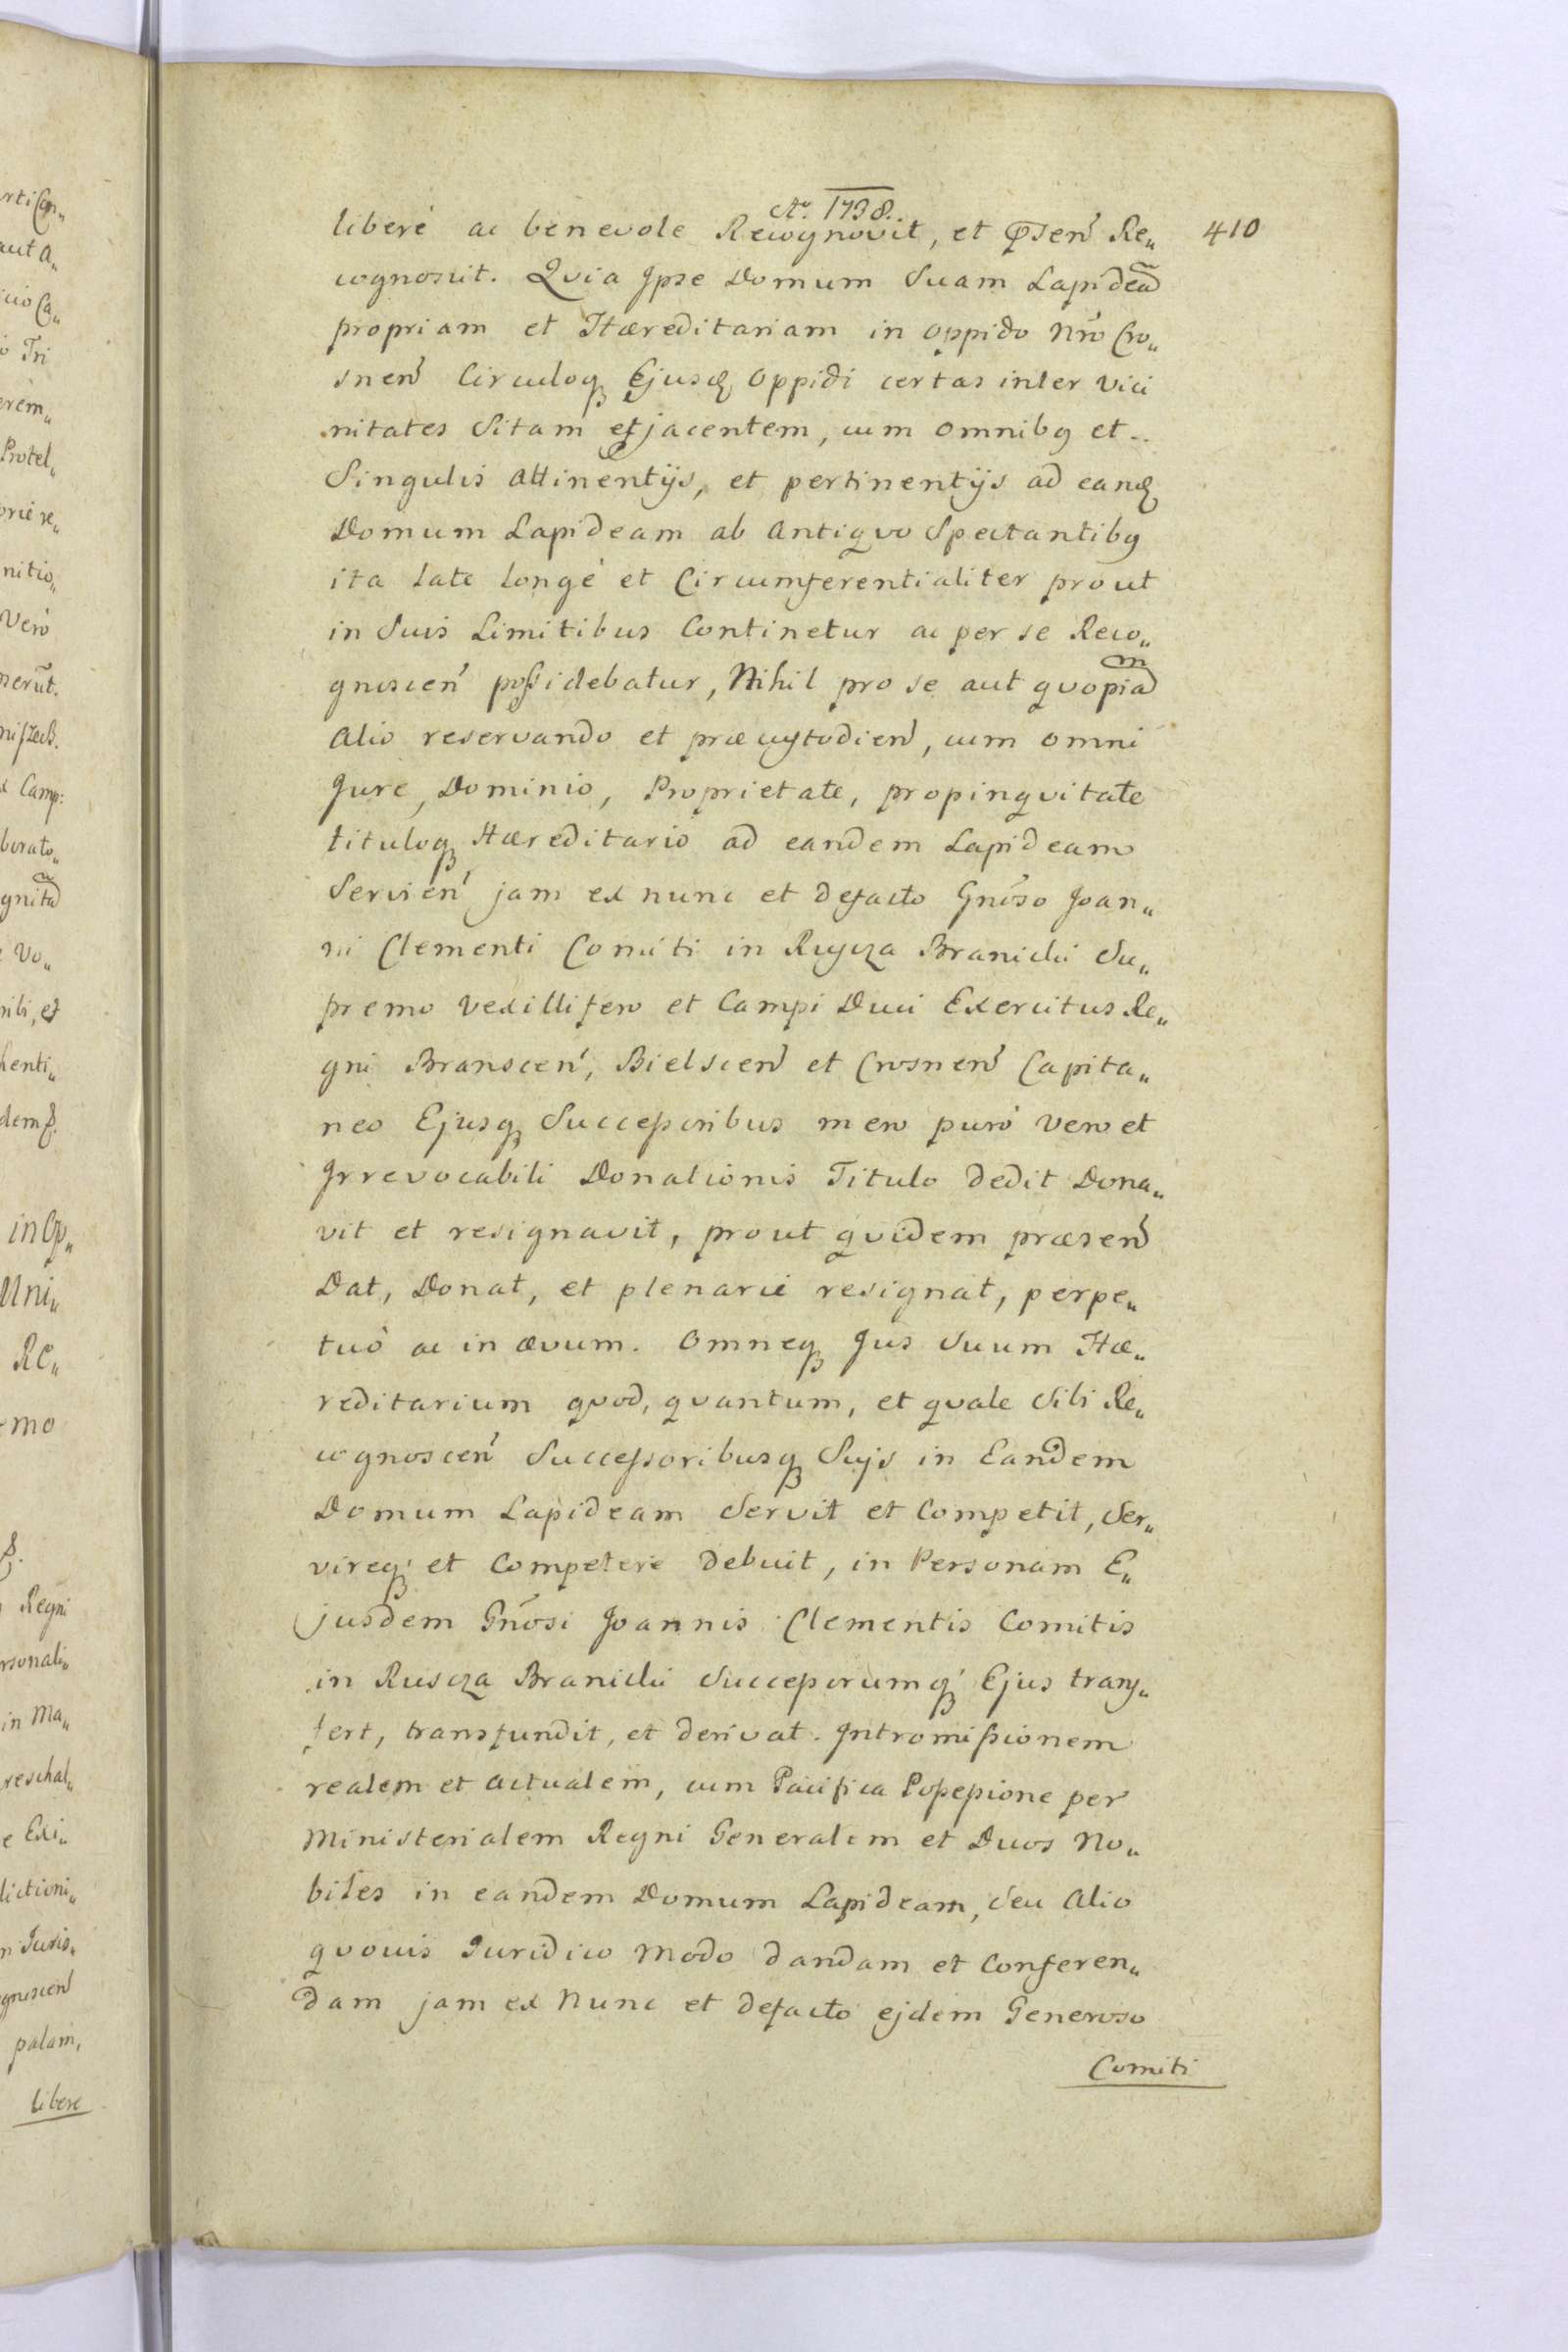 Aõ. 1738.
410
liberè ac benevole Recognovit, et Pῥsen̄ Re„
cognoscit. Qvia Ipse Domum Suam Lapideam̃
propriam et Hæreditariam in oppido Nr̃o Cro„
snen̄ Circuloq; Ejusdꝫ Oppidi certas inter vici
nitates Sitam et jacentem, cum omnibꝯ et..
Singulis attinentijs, et pertinentijs ad eandꝫ
Domum Lapideam ab Antiqvo Spectantibꝯ
ita late longè et Circumferentialiter prout
in Suis Limitibus Continetur ac per se Reco„
gnoscen̄ poſsidebatur, Nihil pro se aut qvopiam̃
Alio reservando et præcustodien̄, cum omni
Jure, Dominio, Proprietate, propinqvitate
tituloq; Hæreditario ad eandem Lapideam
Servien̄ jam ex nunc et defacto Gnõso Joan„
ni Clementi Comiti in Ruscza Branicki Su„
premo Vexillifero et Campi Duci Exercitus Re„
gni Branscen̄, Bielscen̄ et Crosnen̄ Capita„
neo Ejusq; Succeſsoribus mero puro vero et
Irrevocabili Donationis Titulo dedit Dona„
vit et resignavit, prout qvidem præsen̄
Dat, Donat, et plenarie resignat, perpe„
tuò ac in ævum. Omneq; Jus Suum Hæ„
reditarium qvod, qvantum, et qvale Sibi Re„
cognoscen̄ Succeſsoribusq; Suis in Eandem
Domum Lapideam Servit et Competit, Ser„
vireq; et Competere Debuit, in Personam E„
jusdem Gnõsi Joannis Clementis Comitis
in Ruscza Branicki Succeſsorumq; Ejus trans„
fert, transfundit, et derivat. Intromiſsionem
realem et actualem, cum Pacifica Poſseſsione per
Ministerialem Regni Generalem et Duos No„
biles in eandem Domum Lapideam, Seu Alio
qvovis Juridico Modo dandam et Conferen„
dam jam ex Nunc et defacto ejdem Generoso
Comiti